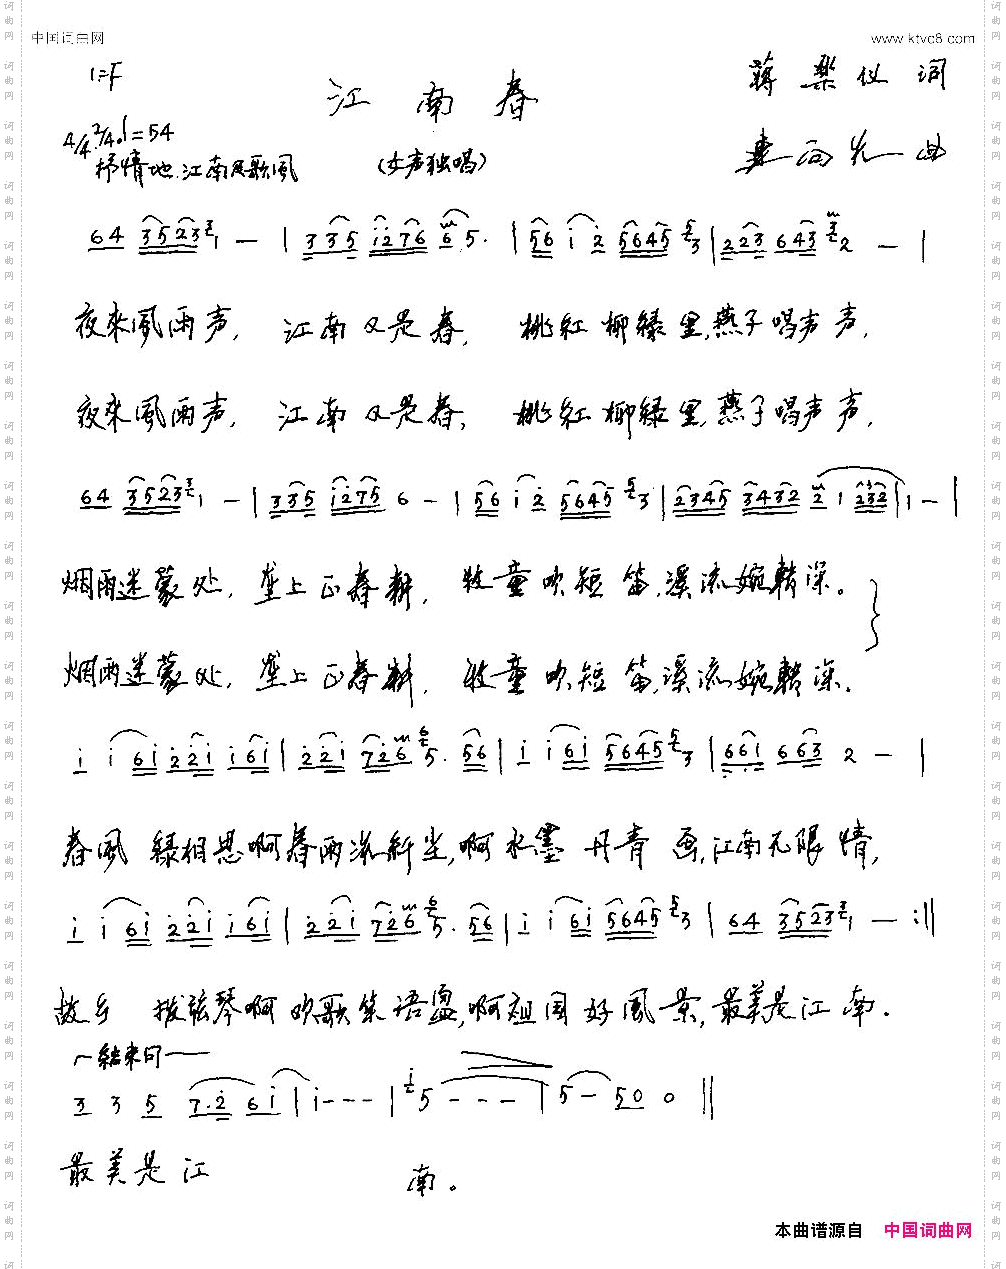 中国词曲网 www.ktvc8.com
1=F
江南春 蒋樂仪 词
4/4 2/4 ♩=54 曲
抒情地.江南民歌風 (女声独唱)
64 3523 1 — | 335 i276 6 5. | 56 i 2 5645 3 | 223 643 2 — |
夜來風雨声, 江南又是春, 桃紅柳綠里,燕子唱声声,
夜來風雨声, 江南又是春, 桃紅柳綠里,燕子唱声声,
64 3523 1 — | 335 i275 6 — | 56 i 2 5645 3 | 2345 3432 2 1 232 | 1 — |
烟雨迷蒙处, 垄上正春耕, 牧童吹短笛,溪流婉转深。
烟雨迷蒙处, 垄上正春耕, 牧童吹短笛,溪流婉转深。
i i 6i 22i i6i | 22i 726 5. 56 | i i 6i 5645 3 | 66i 663 2 — |
春風 綠相思啊春雨洗新尘,啊水墨丹青画,江南无限情,
i i 6i 22i i6i | 22i 726 5. 56 | i i 6i 5645 3 | 64 3523 1 — :||
故乡 拨弦琴啊欢歌笑语盈,啊祖国好風景,最美是江南.
结束句
3 3 5 7.2 6i | i - - - | 5 - - - | 5 — 50 0 ||
最美是江 南。
本曲谱源自 中国词曲网